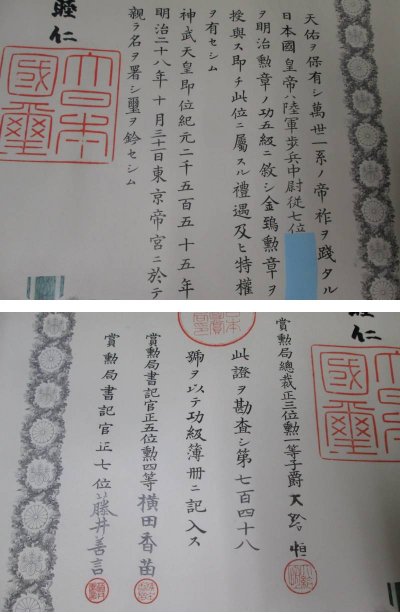 天佑ヲ保有シ萬世一系ノ帝祚ヲ踐タル
日本國皇帝ハ陸軍歩兵中尉從七位
ヲ明治勲章ノ功五級ニ敘シ金鵄勲章ヲ
授與ス即チ此位ニ屬スル禮遇及ヒ特權
ヲ有セシム
神武天皇即位紀元二千五百五十五年
明治二十八年十月三十一日東京帝宮ニ於テ
親ラ名ヲ署シ璽ヲ鈐セシム
睦仁
大日本國璽
睦仁
大日本國璽
賞勲局總裁正三位勲一等子爵大給恒
此證ヲ勘査シ第七百四十八
號ヲ以テ功級簿冊ニ記入ス
賞勲局書記官正五位勲四等横田香苗
賞勲局書記官正七位藤井善言